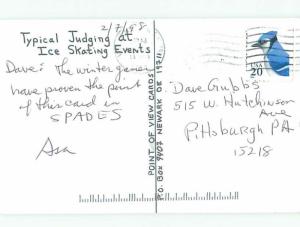 2/7/98
Typical Judging at
Ice Skating Events
Dave: The winter games
have proven the point
of this card in
SPADES
Asa
POINT OF VIEW CARDS
P.O. Box 9407 NEWARK DE 19711
USA
20
Dave Grubbs
515 W. Hutchinson
Ave
Pittsburgh PA
15218